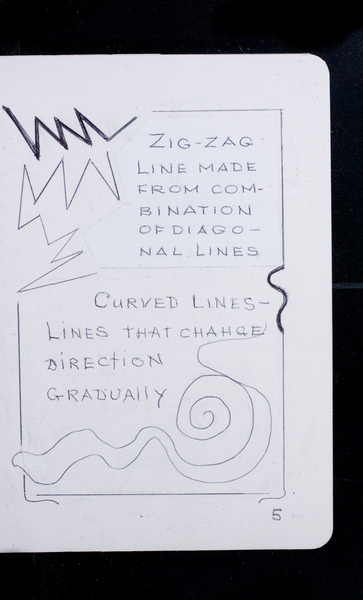 ZIG-ZAG
LINE MADE
FROM COM-
BINATION
OF DIAGO-
NAL LINES
CURVED LINES-
LINES THAT CHANGE
DIRECTION
GRADUALLY
5